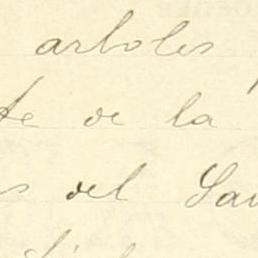 arboles
te de la
s del Sau